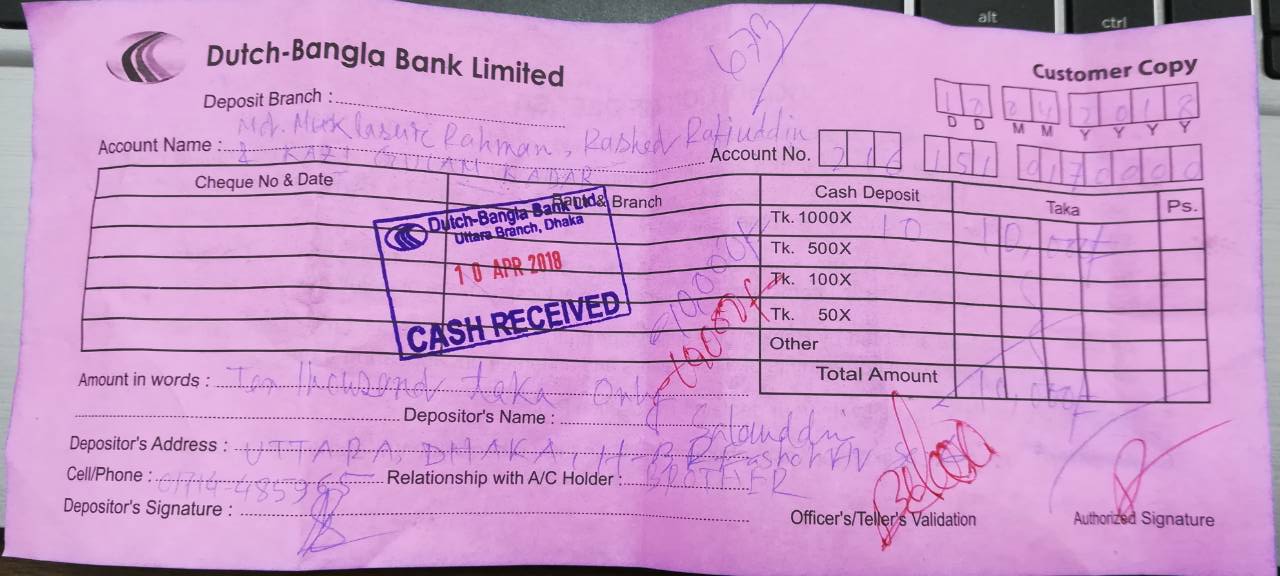 alt
ctrl
Dutch-Bangla Bank Limited
673
Customer Copy
Deposit Branch :
10 04 2018
D D M M Y Y Y Y
Account Name : Md. Rahman, Rashed Rafiuddin
& KAZI KADAR
Account No. 216 151 0170000
Cheque No & Date
Bank & Branch
Cash Deposit
Taka
Ps.
Tk. 1000X 10 10,000/-
Tk. 500X
Tk. 100X
Tk. 50X
Other
Total Amount 10,000/-
Dutch-Bangla Bank Ltd.
Uttara Branch, Dhaka
10 APR 2018
CASH RECEIVED
Amount in words : Ten thousand taka only
Depositor's Name : Salauddin
Depositor's Address : UTTARA, DHAKA,
Cell/Phone : Relationship with A/C Holder : BROTHER
Depositor's Signature :
Officer's/Teller's Validation
Authorized Signature